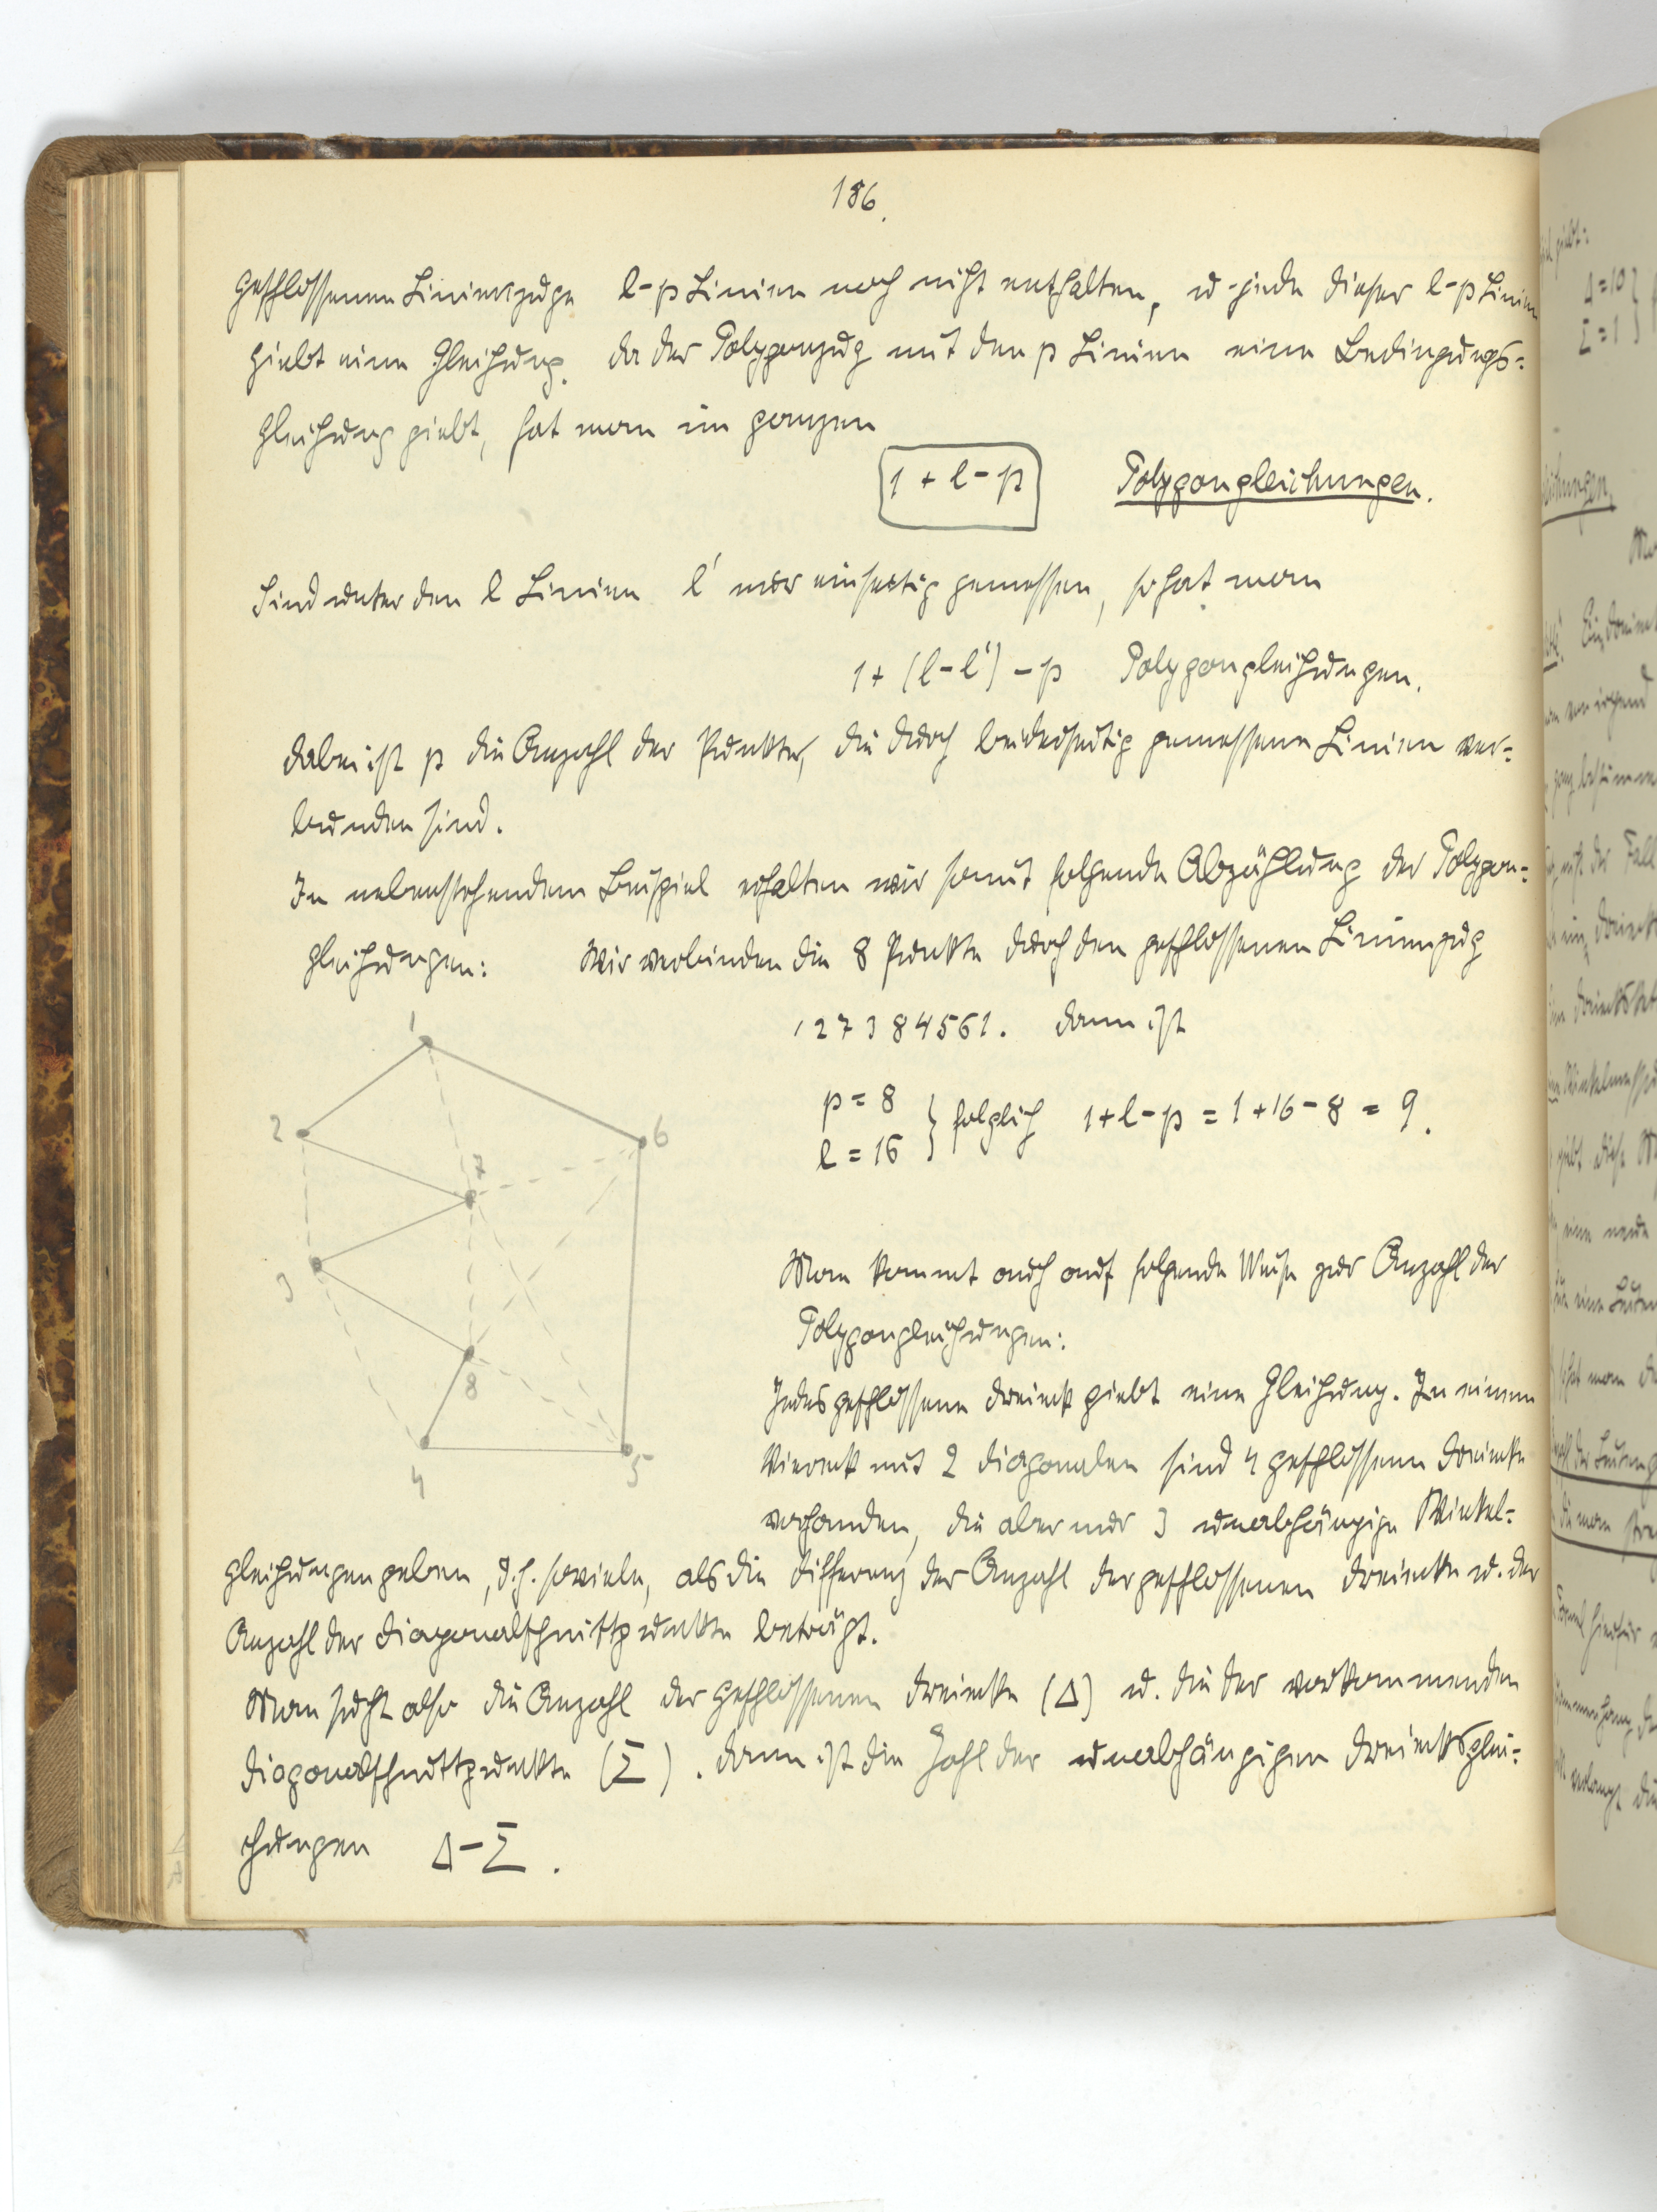 186.
geschlossenen Linienzuge l-p Linien noch nicht enthalten, u. jede dieser l-p Linien
giebt eine Gleichung. Da der Polygonzug mit den p Linien eine Bedingungs=
gleichung giebt, hat man im ganzen
1 + l - p Polygongleichungen.
Sind unter den l Linien l' nur einseitig gemessen, so hat man
1 + (l - l') - p Polygongleichungen.
Dabei ist p die Anzahl der Punkte, die durch beiderseitig gemessene Linien ver=
bunden sind.
In nebenstehendem Beispiel erhalten wir somit folgende Abzählung der Polygon=
gleichungen: Wir verbinden die 8 Punkte durch den geschlossenen Linienzug
127384561. Dann ist
p = 8
l = 16 } folglich 1 + l - p = 1 + 16 - 8 = 9.
1
2
6
7
3
8
4
5
Man kommt auch auf folgende Weise zur Anzahl der
Polygongleichungen:
Jedes geschlossene Dreieck giebt eine Gleichung. In einem
Viereck mit 2 Diagonalen sind 4 geschlossene Dreiecke
vorhanden, die aber nur 3 unabhängige Winkel=
gleichungen geben, d.h. soviele, als die Differenz der Anzahl der geschlossenen Dreiecke u. der
Anzahl der Diagonalschnittpunkte beträgt.
Man sucht also die Anzahl der geschlossenen Dreiecke (Δ) u. die der vorkommenden
Diagonalschnittpunkte (Σ). Dann ist die Zahl der unabhängigen Dreiecksglei=
chungen Δ - Σ.
Δ = 10
Σ = 1 }